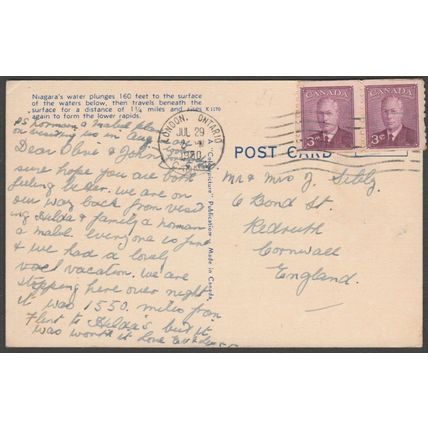 Niagara's water plunges 160 feet to the surface
of the waters below, then travels beneath the
surface for a distance of 1¼ miles and rises K 1170
again to form the lower rapids.
PS norman & mabel plan
on visiting us in Aug
Dear Olive & John
sure hope you are both
feeling better. we are on
our way back from visit
ing Hilda & family & norman
& mabel. everyone is fine
& we had a lovely
vacation. we are
stopping here over night
it was 1550. miles from
Flint to Hilda's, but it
was worth it love
LONDON, ONTARIO
JUL 29
CANADA
3¢
CANADA
3¢
POST CARD
"Picture" Publication - Made in Canada.
Mr & Mrs J.
6 Bond St.
Redruth
Cornwall
England.